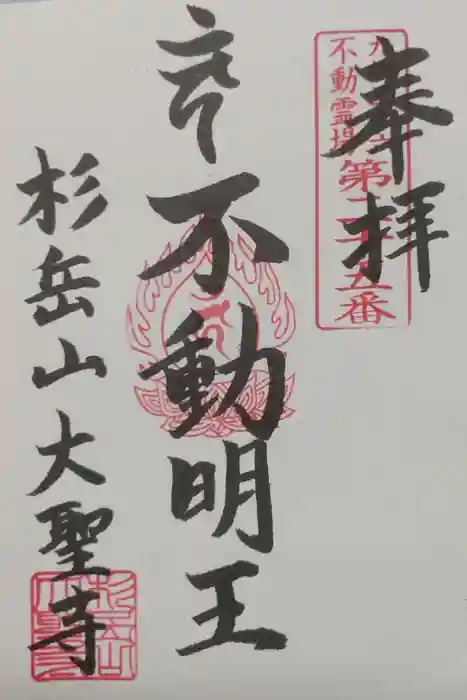 奉拝
不動霊場
第二十五番
不動明王
杉岳山大聖寺